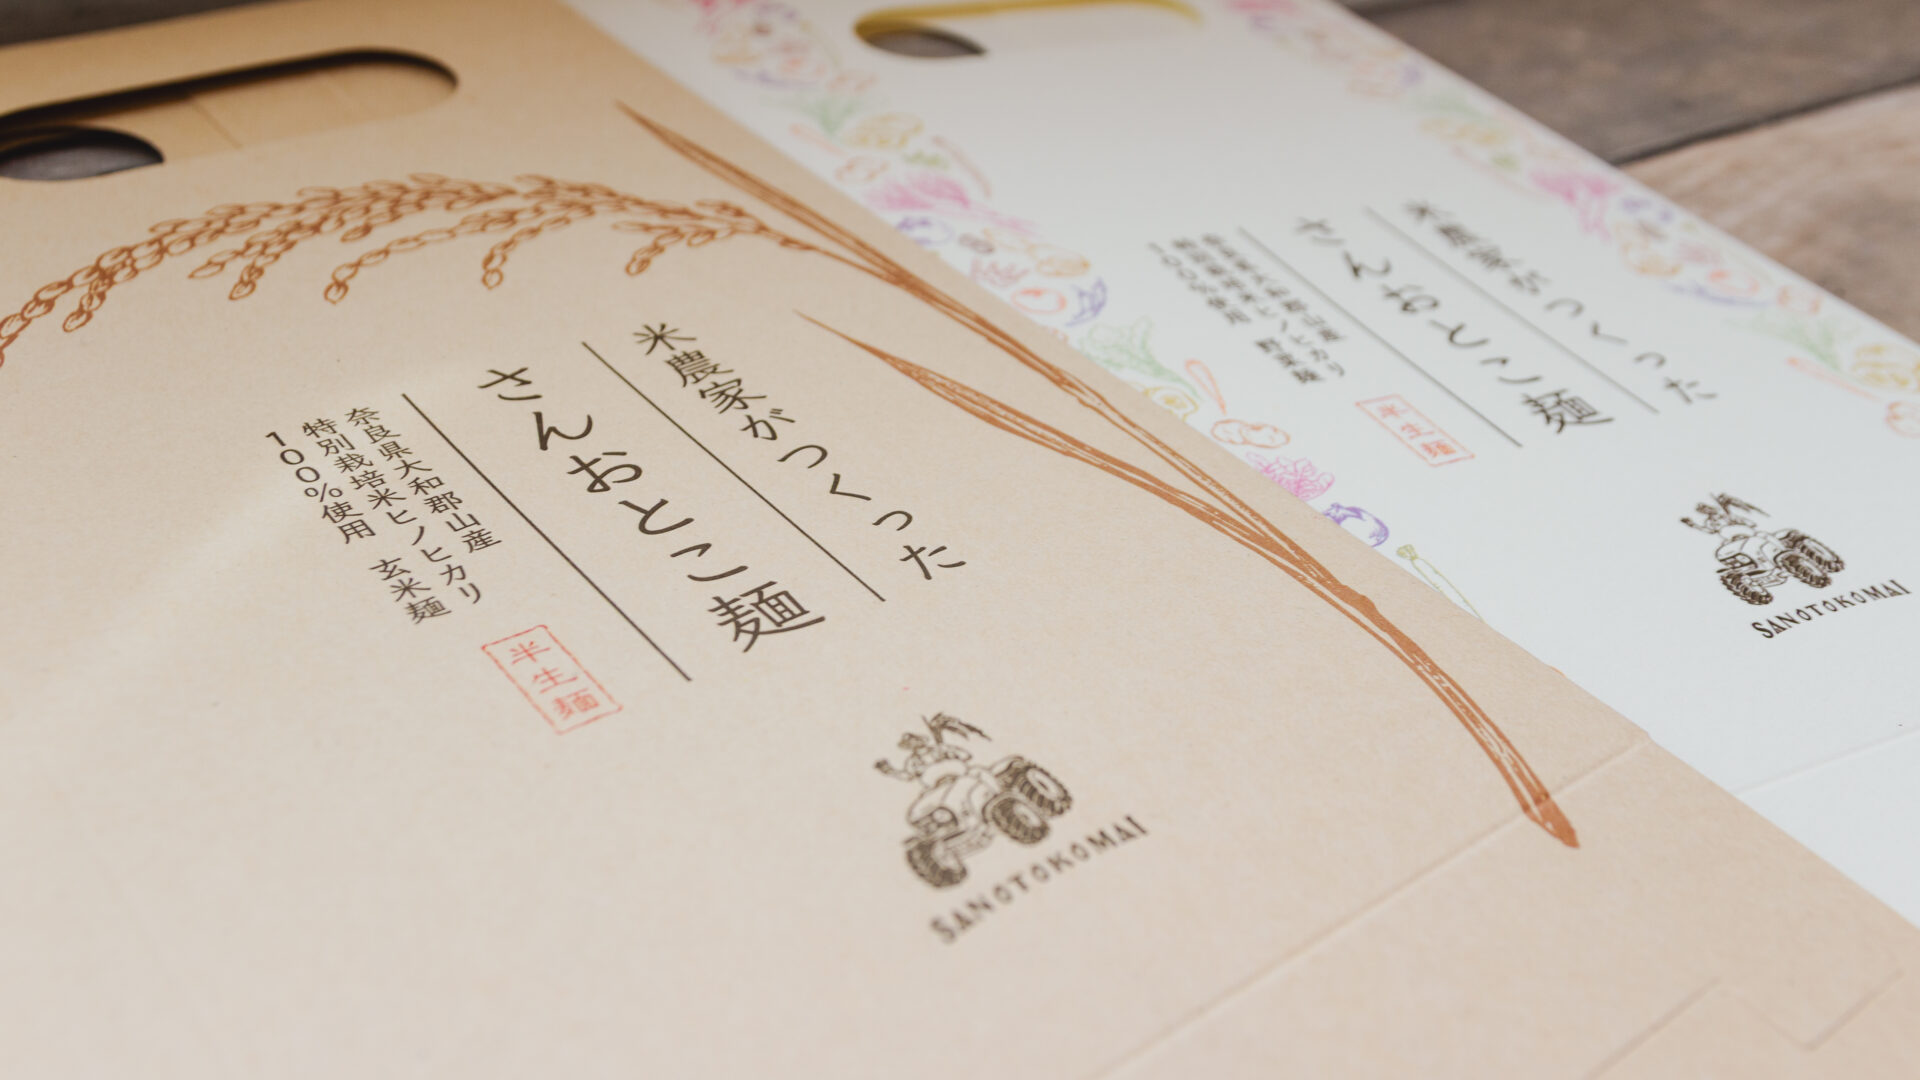 米農家がつくった
さんおとこ麺
奈良県大和郡山産
特別栽培米ヒノヒカリ
100%使用 玄米麺
半生麺
SANOTOKOMAI
米農家がつくった
さんおとこ麺
奈良県大和郡山産
特別栽培米ヒノヒカリ
100%使用 野菜麺
半生麺
SANOTOKOMAI